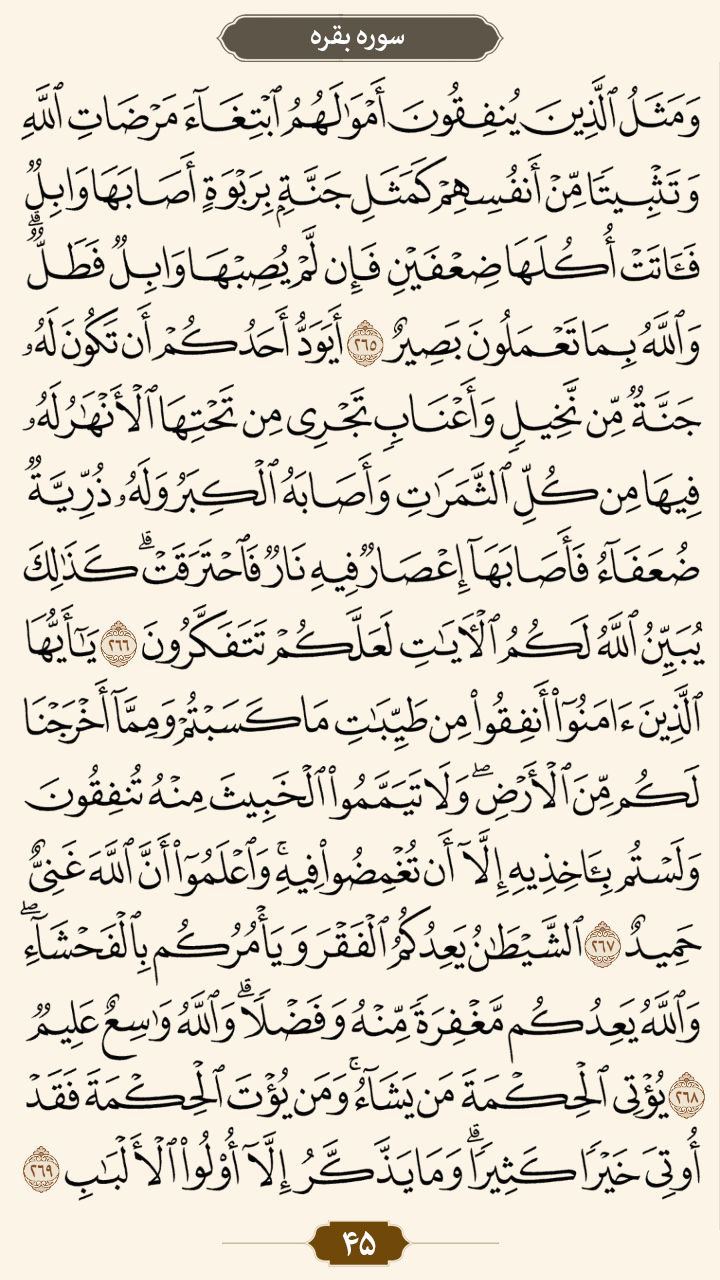 سوره بقره
وَمَثَلُ ٱلَّذِينَ يُنفِقُونَ أَمْوَٰلَهُمُ ٱبْتِغَآءَ مَرْضَاتِ ٱللَّهِ
وَتَثْبِيتًا مِّنْ أَنفُسِهِمْ كَمَثَلِ جَنَّةِۭ بِرَبْوَةٍ أَصَابَهَا وَابِلٌ
فَـَٔاتَتْ أُكُلَهَا ضِعْفَيْنِ فَإِن لَّمْ يُصِبْهَا وَابِلٌ فَطَلٌّ ۗ
وَٱللَّهُ بِمَا تَعْمَلُونَ بَصِيرٌ ٢٦٥ أَيَوَدُّ أَحَدُكُمْ أَن تَكُونَ لَهُۥ
جَنَّةٌ مِّن نَّخِيلٍ وَأَعْنَابٍ تَجْرِى مِن تَحْتِهَا ٱلْأَنْهَٰرُ لَهُۥ
فِيهَا مِن كُلِّ ٱلثَّمَرَٰتِ وَأَصَابَهُ ٱلْكِبَرُ وَلَهُۥ ذُرِّيَّةٌ
ضُعَفَآءُ فَأَصَابَهَآ إِعْصَارٌ فِيهِ نَارٌ فَٱحْتَرَقَتْ ۗ كَذَٰلِكَ
يُبَيِّنُ ٱللَّهُ لَكُمُ ٱلْـَٔايَٰتِ لَعَلَّكُمْ تَتَفَكَّرُونَ ٢٦٦ يَٰٓأَيُّهَا
ٱلَّذِينَ ءَامَنُوٓا۟ أَنفِقُوا۟ مِن طَيِّبَٰتِ مَا كَسَبْتُمْ وَمِمَّآ أَخْرَجْنَا
لَكُم مِّنَ ٱلْأَرْضِ ۖ وَلَا تَيَمَّمُوا۟ ٱلْخَبِيثَ مِنْهُ تُنفِقُونَ
وَلَسْتُم بِـَٔاخِذِيهِ إِلَّآ أَن تُغْمِضُوا۟ فِيهِ ۚ وَٱعْلَمُوٓا۟ أَنَّ ٱللَّهَ غَنِىٌّ
حَمِيدٌ ٢٦٧ ٱلشَّيْطَٰنُ يَعِدُكُمُ ٱلْفَقْرَ وَيَأْمُرُكُم بِٱلْفَحْشَآءِ ۖ
وَٱللَّهُ يَعِدُكُم مَّغْفِرَةً مِّنْهُ وَفَضْلًا ۗ وَٱللَّهُ وَٰسِعٌ عَلِيمٌ
٢٦٨ يُؤْتِى ٱلْحِكْمَةَ مَن يَشَآءُ ۚ وَمَن يُؤْتَ ٱلْحِكْمَةَ فَقَدْ
أُوتِىَ خَيْرًا كَثِيرًا ۗ وَمَا يَذَّكَّرُ إِلَّآ أُو۟لُوا۟ ٱلْأَلْبَٰبِ ٢٦٩
۴۵